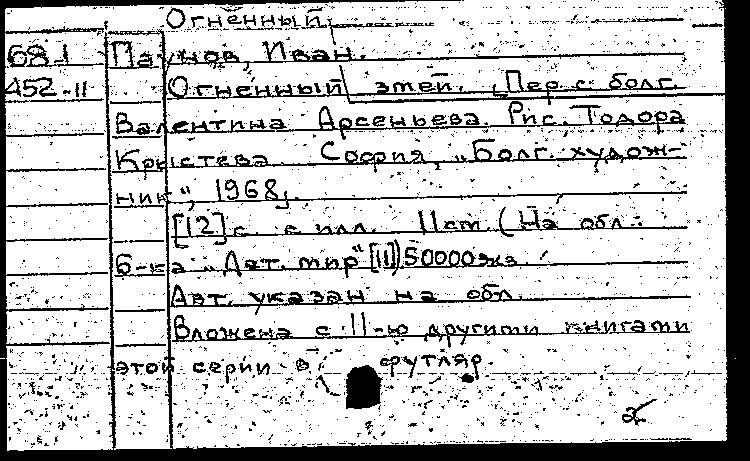 Огненный
68-1 Паунов, Иван.
452-11 Огненный змей. [Пер. с болг.
Валентина Арсеньева. Рис. Тодора
Крыстева. София, „Болг. худож-
ник“, 1968].
[12] с. с илл. 11 см. (На обл.:
б-ка „Дет. мир“ [11]) 50000 экз.
Авт. указан на обл.
Вложена с 11-ю другими книгами
этой серии в футляр.